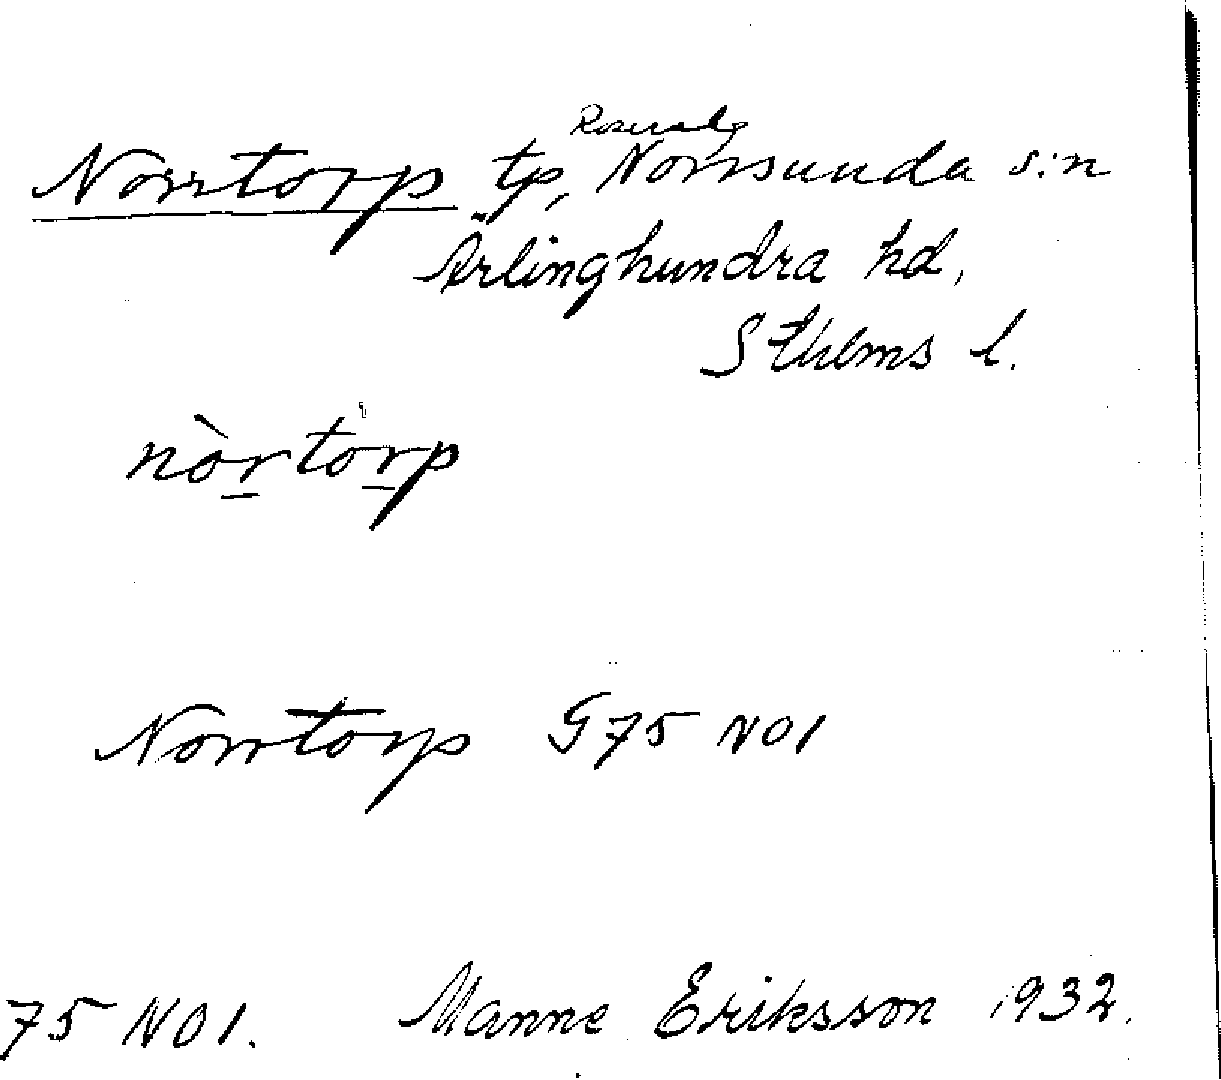 Rosersberg
Norrtorp tp, Norrsunda s:n
Ärlinghundra hd,
Sthlms l.
nòrtòrp
Norrtorp G75 NO1
75 NO1. Manne Eriksson 1932.